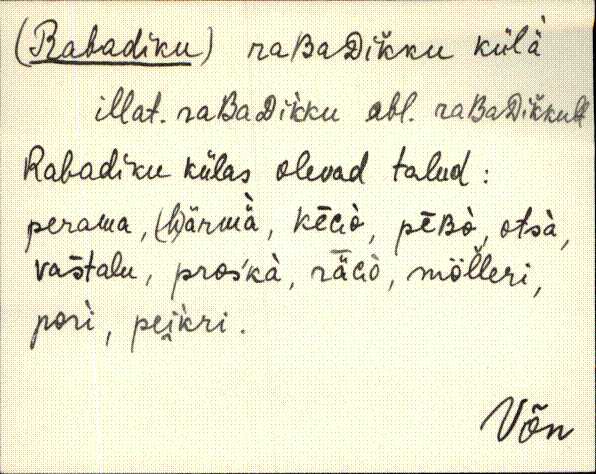 (Rabadiku) raBaDik̆ku külà̈
illat. raBaDik̀ku abl. raBaDik̆kult
Rabadiku külas olevad talud:
perama, (h)ärmà̈, kēGò, pēBò, otsà,
vas̄talu, pros'kà, rǟGò, möl̆leri,
porì, pei̯kri.
Võn